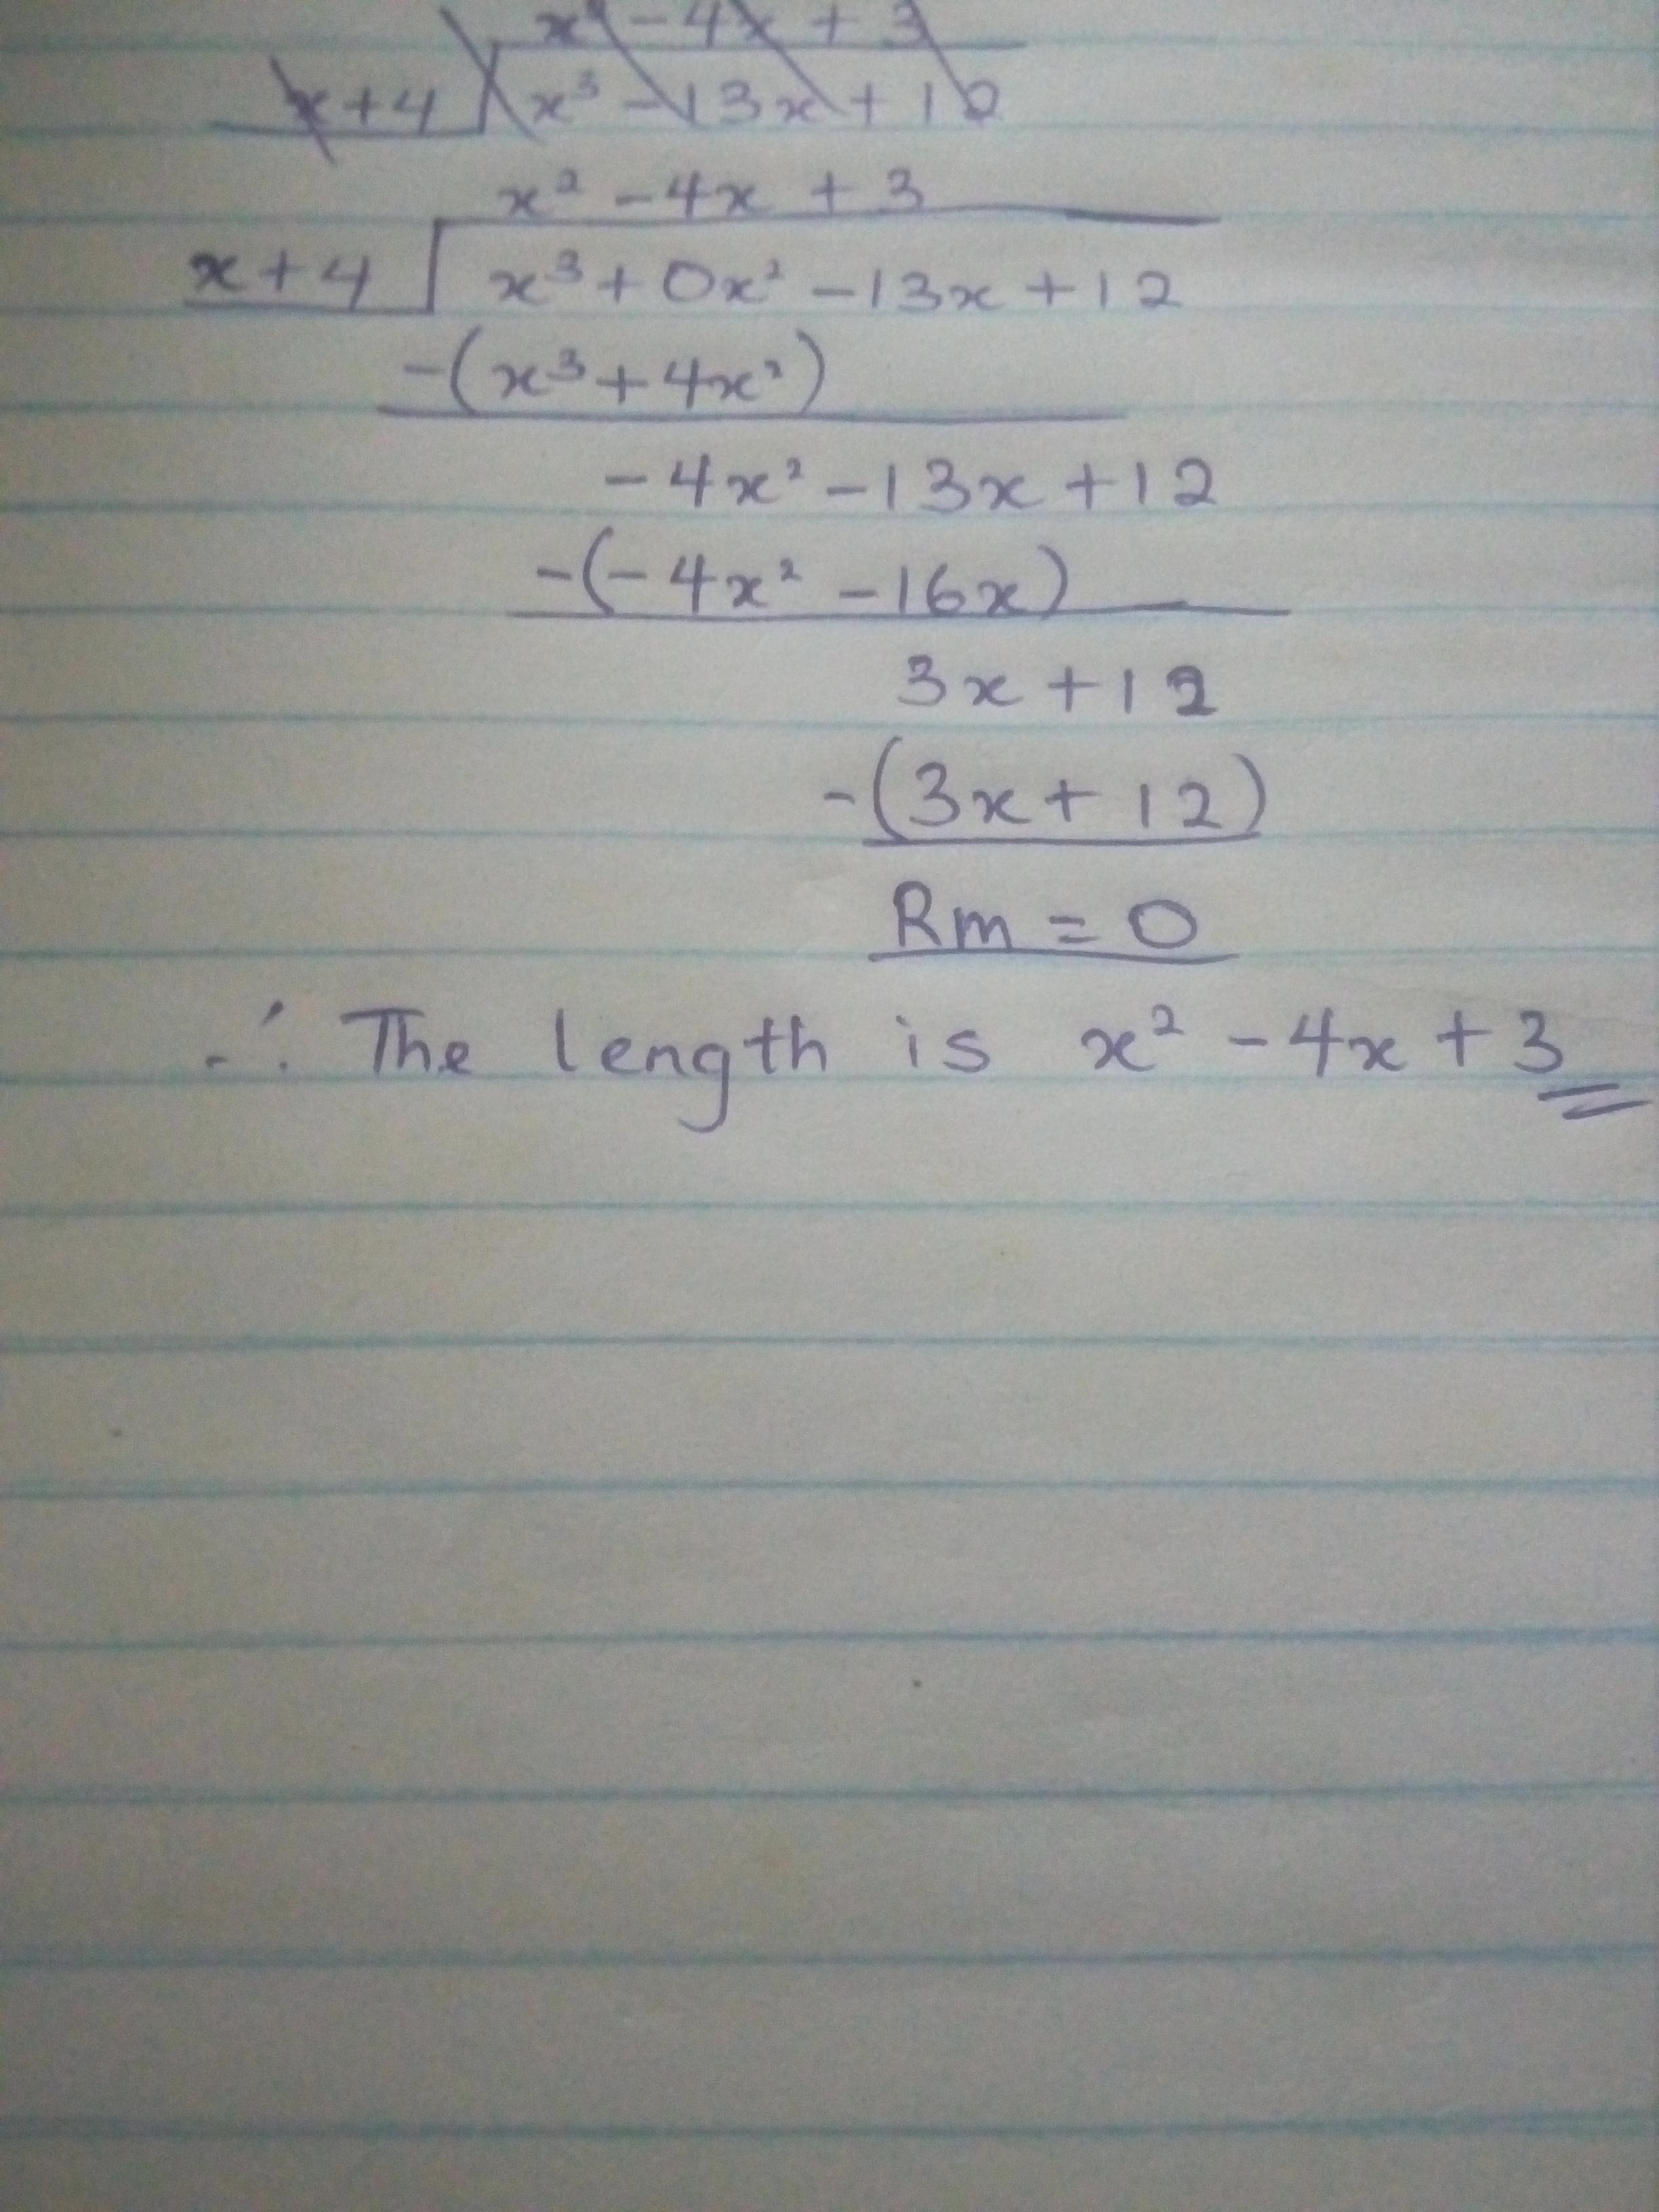 x² - 4x + 3
x + 4 x³ - 13x + 12
x² - 4x + 3
x + 4 x³ + 0x² - 13x + 12
-(x³ + 4x²)
- 4x² - 13x + 12
-(- 4x² - 16x)
3x + 12
-(3x + 12)
Rm = 0
∴ The length is x² - 4x + 3